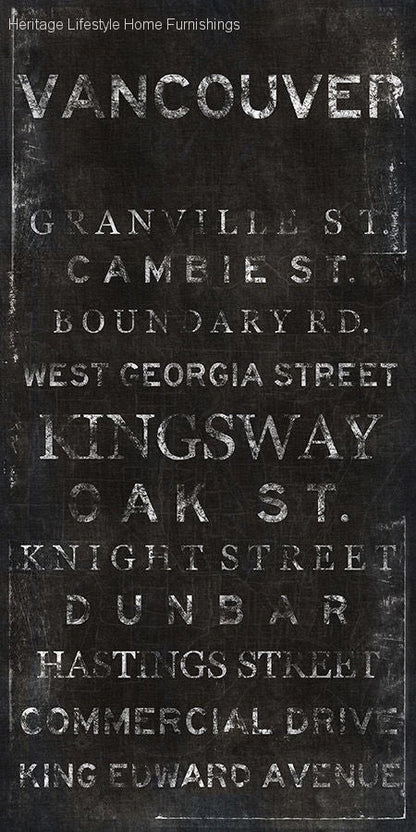 Heritage Lifestyle Home Furnishings
VANCOUVER
GRANVILLE ST.
CAMBIE ST.
BOUNDARY RD.
WEST GEORGIA STREET
KINGSWAY
OAK ST.
KNIGHT STREET
DUNBAR
HASTINGS STREET
COMMERCIAL DRIVE
KING EDWARD AVENUE